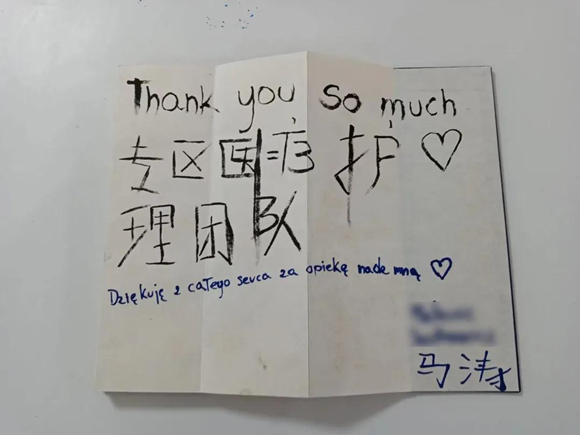 Thank you So much
专区医疗护♡
理团队
Dziękuję z całego serca za opiekę nade mną ♡
马